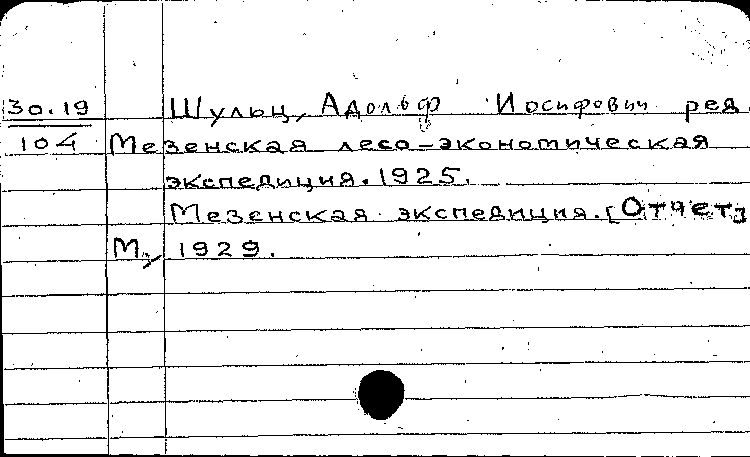 30.19 Шульц, Адольф Иосифович ред.
104 Мезенская лесо-экономическая
экспедиция. 1925.
Мезенская экспедиция. [Отчет]
М., 1929.